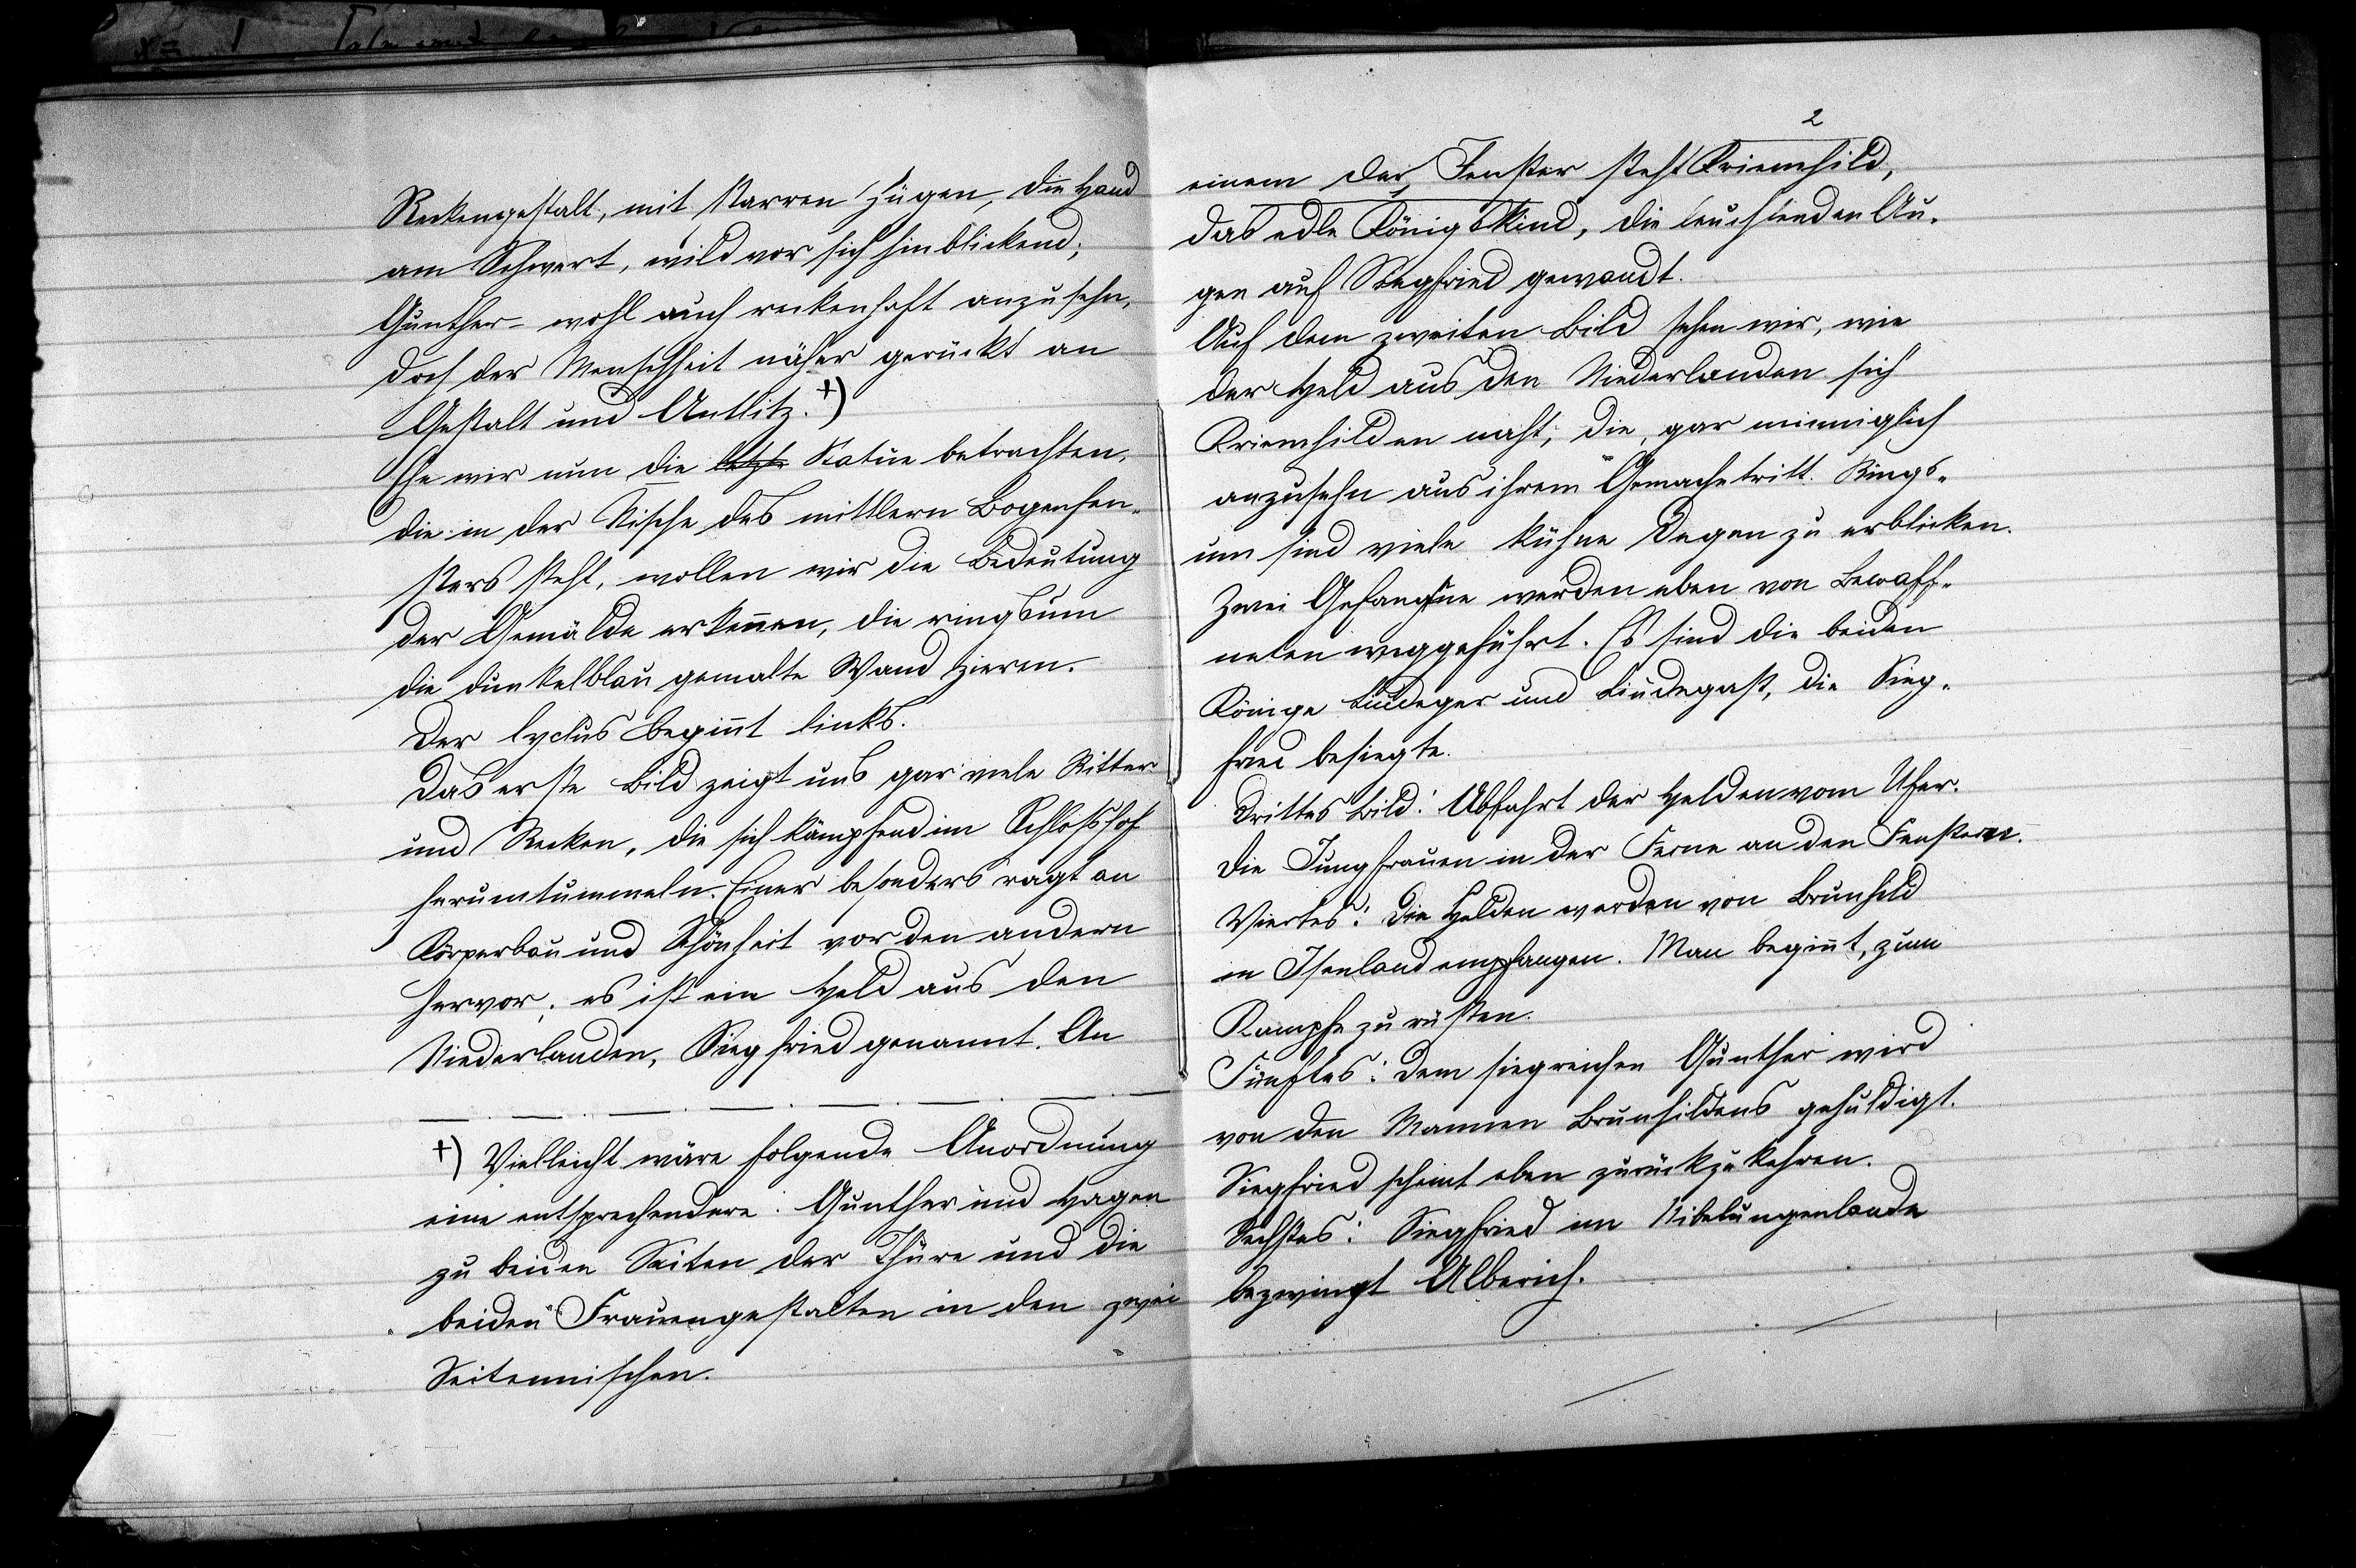 Reckengestalt, mit starren Zügen, die Hand
am Schwert, wild vor sich hinblickend;
Gunther – wohl auch reckenhaft anzusehn,
doch der Menschheit näher gerückt an
Gestalt und Antlitz. +)
Ehe wir nun die letzte Statue betrachten,
die in der Nische des mittlern Bogenfen-
sters steht, wollen wir die Bedeutung
der Gemälde erkennen, die ringsum
die dunkelblau gemalte Wand zieren.
Der Cyclus beginnt links.
Das erste Bild zeigt uns gar viele Ritter
und Recken, die sich kämpfend im Schloßhof
herumtummeln. Einer besonders ragt an
Körperbau und Schönheit vor den andern
hervor; es ist ein Held aus den
Niederlanden, Siegfried genannt. An
+) Vielleicht wäre folgende Anordnung
eine entsprechendere: Gunther und Hagen
zu beiden Seiten der Thüre und die
beiden Frauengestalten in den zwei
Seitennischen.
2
einem der Fenster steht Kriemhild,
das edle Königskind, die leuchtenden Au-
gen auf Siegfried gewandt.
Auf dem zweiten Bild sehen wir, wie
der Held aus den Niederlanden sich
Kriemhilden naht, die, gar minniglich
anzusehn aus ihrem Gemache tritt. Rings-
um sind viele kühne Degen zu erblicken.
Zwei Gefangne werden eben von Bewaff-
neten weggeführt. Es sind die beiden
Könige Liudeger und Liudegast, die Sieg-
fried besiegte.
Drittes Bild: Abfahrt der Helden vom Ufer.
Die Jungfrauen in der Ferne an den Fenstern.
Viertes: Die Helden werden von Brunhild
in Isenland empfangen. Man beginnt, zum
Kampfe zu rüsten.
Fünftes: Dem siegreichen Gunther wird
von den Mannen Brunhildens gehuldigt.
Siegfried scheint eben zurückzukehren.
Sechstes: Siegfried im Nibelungenlande
bezwingt Alberich.